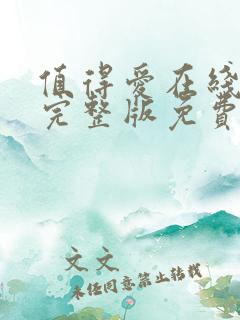 值得爱在线
完整版免费
文文
未经同意禁止转载